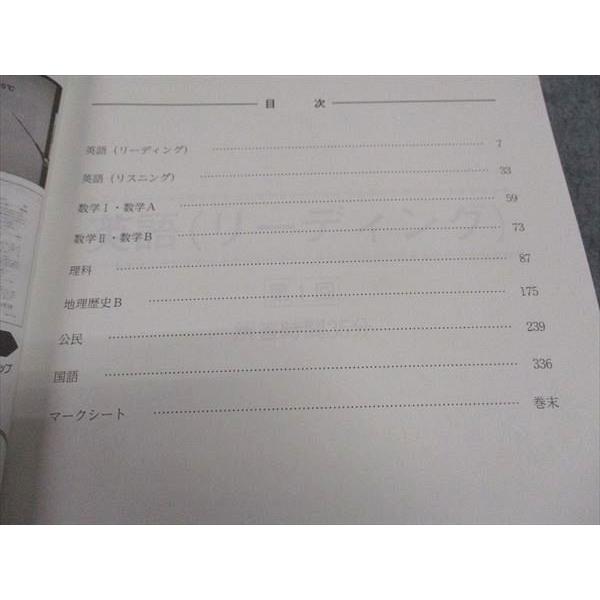 目 次
英語（リーディング） 7
英語（リスニング） 33
数学Ⅰ・数学A 59
数学Ⅱ・数学B 73
理科 87
地理歴史B 175
公民 239
国語 336
マークシート 巻末
英語（リーディング）
第1回